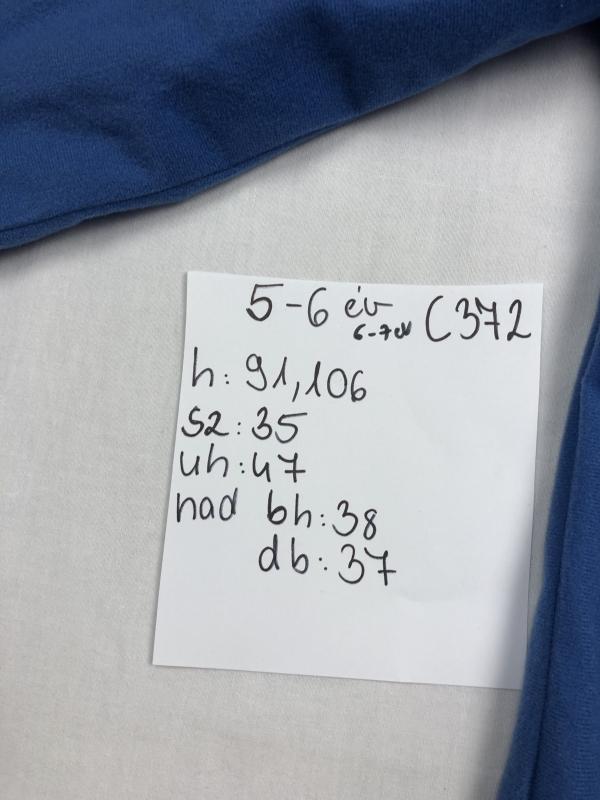 5-6 év C372
6-7 év
h: 91,106
sz: 35
uh: 47
nad bh: 38
db: 37